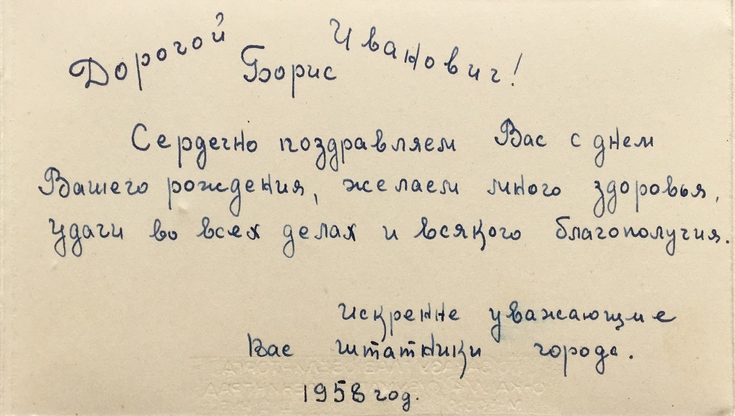 Дорогой Борис Иванович!
Сердечно поздравляем Вас с днем
Вашего рождения, желаем много здоровья,
удачи во всех делах и всякого благополучия.
искренне уважающие
Вас штатники города.
1958 год.